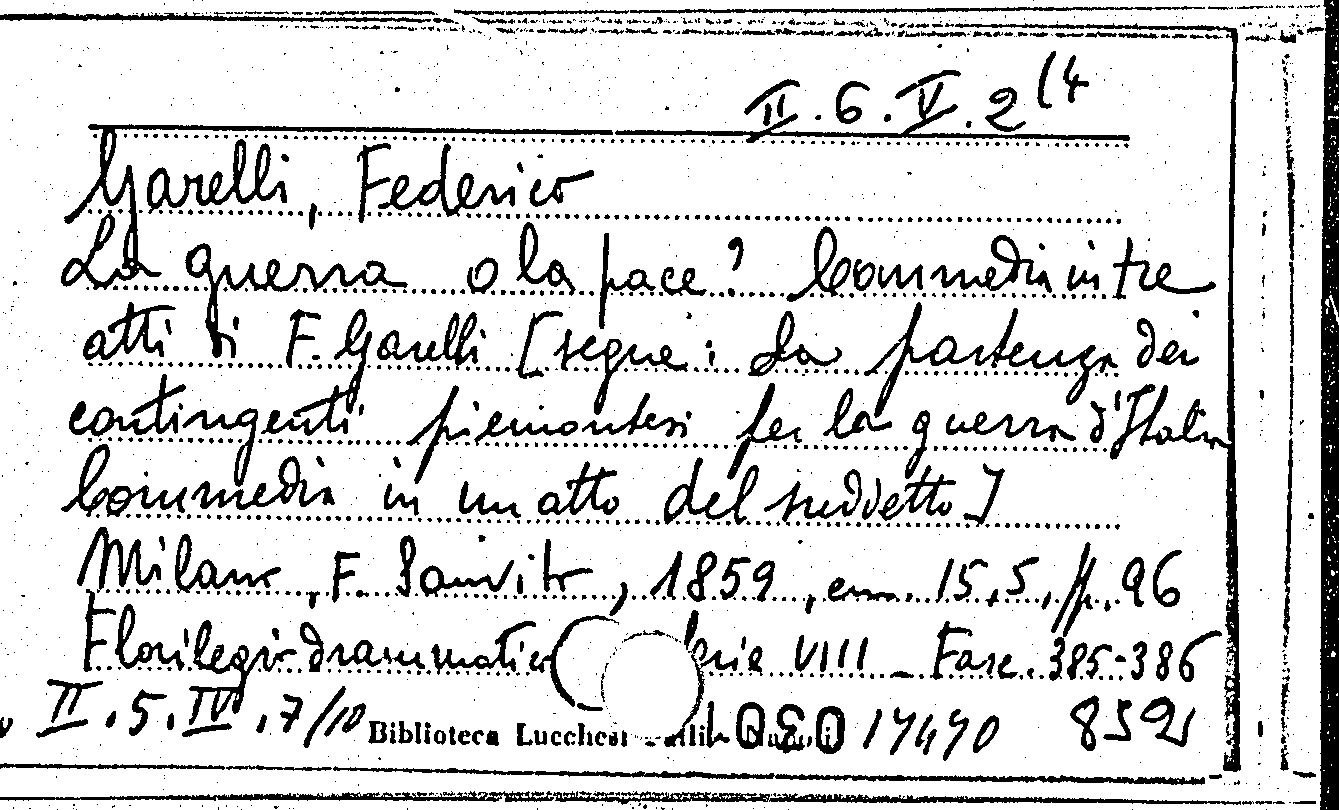 II.6.V.2(4
Garelli, Federico
La guerra o la pace? Commedia in tre
atti di F. Garelli [segue: La partenza dei
contingenti piemontesi per la guerra d'Italia
Commedia in un atto del suddetto]
Milano, F. Sanvito, 1859, cm. 15,5, pp. 96
Florilegio drammatico Serie VIII - Fasc. 385-386
II.5.IV.7/10 Biblioteca Lucchesi 17470 852